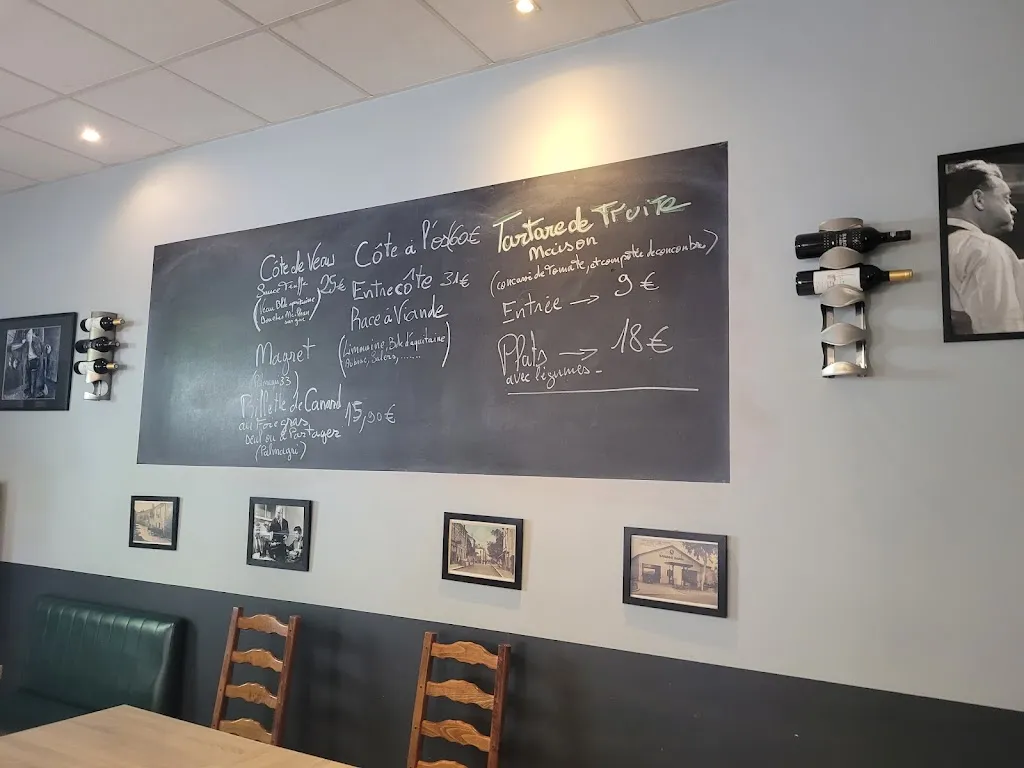 Côte de Veau
Sauce Truffe 25€
Magret
Rillette de Canard
au Foie gras 15,90€
Seul ou à Partager
(Palmagri)
Côte à l'os 60€
Entrecôte 31€
Race à Viande
(Limousine, Bde d'aquitaine
Tartare de Truite
Maison
(concassé de tomate, et compotée de concombre)
Entrée → 9€
Plats → 18€
avec légumes -